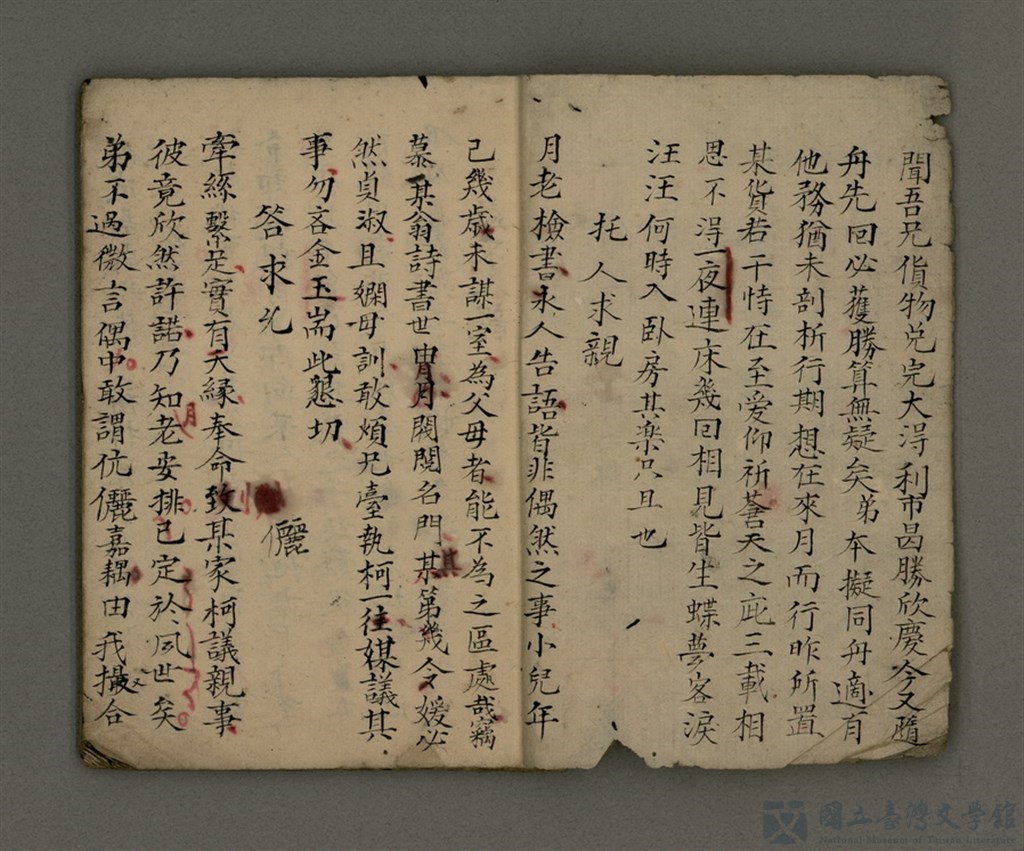 聞吾兄貨物兌完大淂利市曷勝欣慶今又隨
舟先回必獲勝算無疑矣弟本擬同舟適有
他務猶未剖析行期想在來月而行昨所置
某貨若干恃在至爱仰祈蒼天之庇三載相
思不淂一夜連床幾回相見皆生蝶夢客淚
汪汪何時入臥房其楽只且也
托人求親
月老檢書氷人告語皆非偶然之事小兒年
已幾歲未謀一室為父母者能不為之區處哉竊
慕某翁詩書世冑閥閱名門某第幾令嫒必
然貞淑且嫻母訓敢煩兄臺執柯一往媒議其
事勿吝金玉耑此懇切
答求允
儷
牽絲繫足實有天緣奉命致某家柯議親事
彼竟欣然許諾乃知月老安排已定於夙世矣
弟不過微言偶中敢謂伉儷嘉耦由我撮合
國立臺灣文學館
National Museum of Taiwan Literature